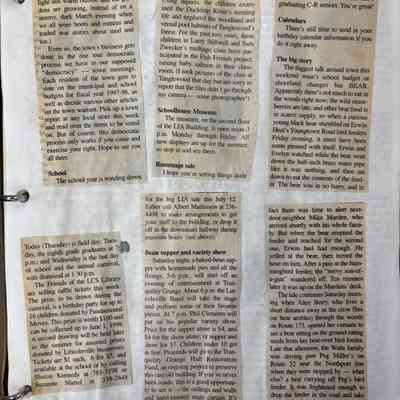 light with warm
dens are growing, instead of on a
snowy, dark March evening when
we all wore boots and mittens and
traded war stories about mud and
ice.)
Even so, the town's business gets
done in the one true democratic
process we have in our supposed
"democracy" — town meetings.
Each resident of the town gets to
vote on the municipal and school
budgets for fiscal year 1997-98, as
well as decide various other articles
on the town warrant. Pick up a town
report at any local store this week
and read over the items to be voted
on. But of course, this democratic
process only works if you come and
exercise your right. Hope to see you
all there.
School
The school year is winding down.
Today (Thursday) is field day. Tuesday, the
eighth grade graduates at
p.m.; and Wednesday is the last day
of school and the annual carnival,
with dismissal at 1:30 p.m.
The Friends of the LCS Library
are selling raffle tickets this week.
The prize, to be drawn during the
carnival, is a birthday party for up to
16 children donated by Fundamental
Moves. This prize is worth $100 and
can be collected up to June 1, 1998.
A second drawing will be held later
in the summer for assorted prizes
donated by Lincolnville businesses.
Tickets are $1 each, 6 for $5, and
available at the school or by calling
Sharon Kennedy at 763-
or
Suzanne Mattel at 338-2844.
Using reports, the children examined
the Ducktrap River's
life and explored the woodland and
vernal pool habitats of Tanglewood's
forest. For the past two years, those
children in Larry Sidwell and Barb
Zweckers's multiage class have participated
in the Fish Friends project,
raising baby salmon in their classroom.
(I took pictures of the class at
Tanglewood that day but am sorry to
report that the film didn't go through
my camera — some photographer!)
Schoolhouse Museum
The museum, on the second floor
of the LIA Building, is open noon-3
p.m. Monday through Friday. All
new displays are up for the summer,
so stop in and see them.
Rummage sale
I hope you're setting things aside
for the big LIA sale this July 12.
Either call Albert Mathieson at 236-
to make arrangements to get
your stuff to the building, or drop it
off in the downstairs hallway during
museum hours (see above).
Bean supper and variety show
Saturday night, a baked-bean supper
with homemade pies and all the
fixings, 5-6 p.m., will start off an
evening of entertainment at Tranquility
Grange. About 6 p.m. the Lincolnville
Band will take the stage
and perform some of their favorite
pieces. At 7 p.m. Phil Clement will
put on his popular variety show.
Price for the supper alone is $4, and
$4 for the show alone; or supper and
show for $7. Children under 10 get
in free. Proceeds will go to the Tranquility
Grange Hall Restoration
Fund, an ongoing project to preserve
this one-room building. If you've never
been inside, this is a good opportunity
to see it — the ceilings and walls
graduating C-R seniors. You're great!
Calendars
There's still time to send in your
birthday calendar information if you
do it right away.
The big story
The biggest talk around town this
weekend wasn't school budget or
shoreland changes but BEAR.
Apparently there's not much to eat in
the woods right now; the wild strawberries
are late, and other bear food is
in scarce supply, so when a curious
young black bear stumbled on Erwin
Heal's Youngtown Road bird feeders
Friday evening, it must have been
some pleased with itself. Erwin and
Evelyn watched while the bear went
down the half-inch brass water pipe
like it was nothing, and then sat
down to eat the contents of the feeder.
The bear was in no hurry, and in
fact there was time to alert next-
door-neighbor Mike Marden, who
arrived shortly with his whole family.
But when the bear emptied the
feeder and reached for the second
one, Erwin had had enough. He
yelled at the bear, then turned the
hose on him. After a pass at the hummingbird
feeder, the "sorry son-of-a-gun"
wandered off. Ten minutes
later it was up on the Mardens' deck.
The tale continues Saturday morning
when Alice Berry, who lives a
short distance away as the crow flies
(or bear ambles) through the woods
on Route 173, opened her curtains to
see a bear sitting on the ground eating
seeds from her beat-over bird feeder.
Late that afternoon, the Watts family
was driving past Peg Miller's on
Route 52 near the Northport line
when they were stopped by — what
else? a bear carrying off Peg's bird
feeder. It was frightened enough to
drop the feeder in the road and take